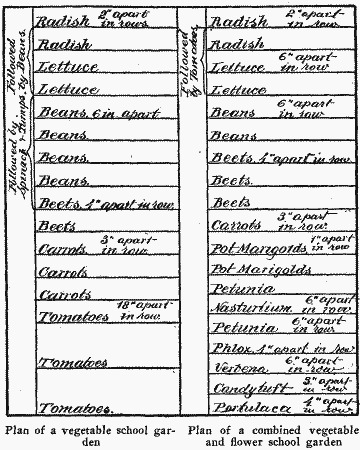 Followed by Spinach & Turnips, by Beans.
Radish 2" apart in rows
Radish
Lettuce
Lettuce
Beans. 6 in. apart
Beans.
Beans.
Beans.
Beets, 4" apart in row.
Beets
Carrots 3" apart in row.
Carrots
Carrots
Tomatoes 18" apart in row.
Tomatoes
Tomatoes.
Plan of a vegetable school garden
Followed by Tomatoes,
Radish 2" apart in row
Radish
Lettuce 6" apart in row
Lettuce
Beans 6" apart in row
Beans
Beets, 4" apart in row
Beets.
Beets
Carrots 3" apart in row
Pot Marigolds 1" apart in row
Pot Marigolds
Petunia
Nasturtium 6" apart in row
Petunia 6" apart in row
Phlox, 4" apart in row
Verbena 6" apart in row.
Candytuft 3" apart in row
Portulaca 4" apart in row
Plan of a combined vegetable
and flower school garden